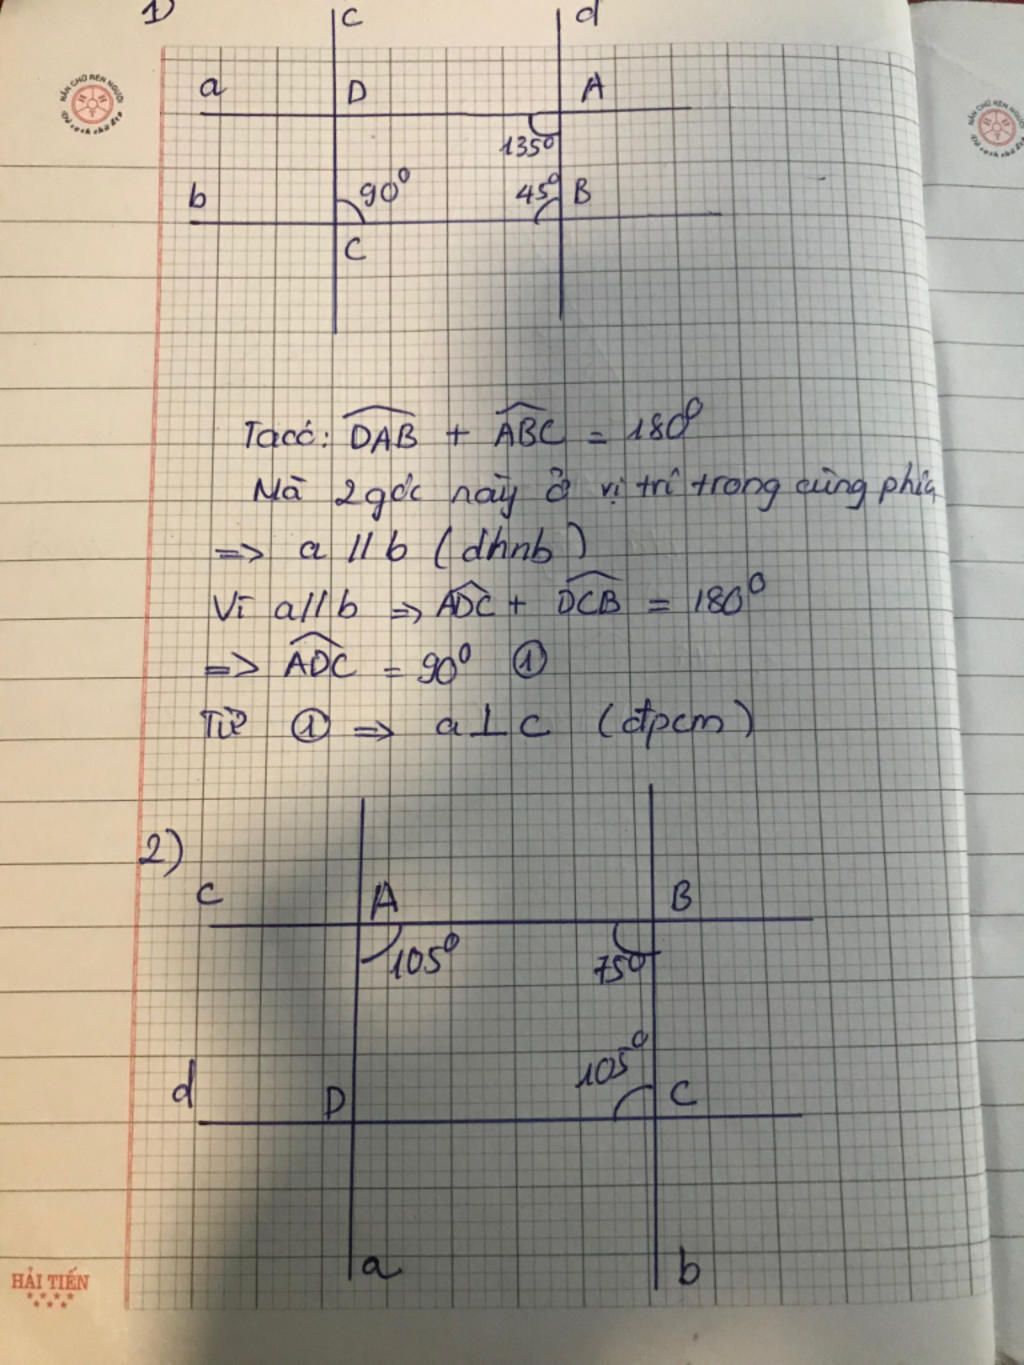 1)
c
d
a
D
A
135⁰
b
90⁰
45⁰
B
C
Ta có: DAB + ABC = 180⁰
Mà 2 góc này ở vị trí trong cùng phía
=> a // b (dhnb)
Vì a//b => ADC + DCB = 180⁰
=> ADC = 90⁰ ①
Từ ① => a⊥c (đpcm)
2)
c
A
B
105⁰
75⁰
105⁰
d
D
C
a
b
HẢI TIẾN